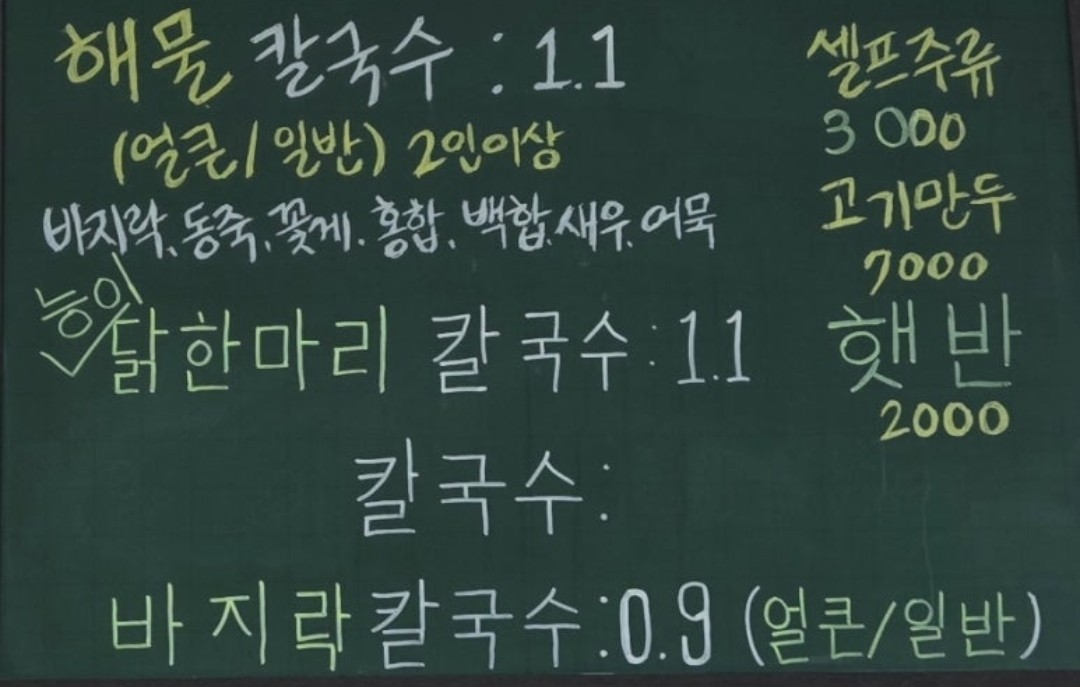 해물 칼국수 : 1.1
(얼큰/일반) 2인이상
바지락, 동죽, 꽃게. 홍합. 백합. 새우. 어묵
능이
닭한마리 칼국수 : 1.1
칼국수 :
바지락칼국수 : 0.9 (얼큰/일반)
셀프주류
3000
고기만두
7000
햇반
2000